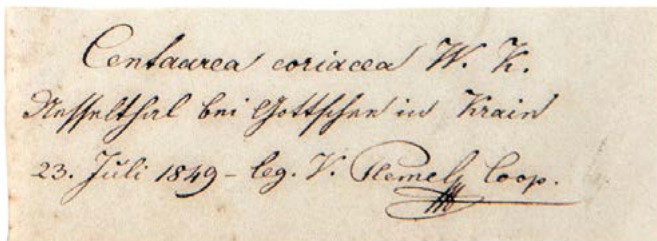 Centaurea coriacea W. K.
Nesselthal bei Gottschee in Krain
23. Juli 1849 - leg. V. Plemel Coop.